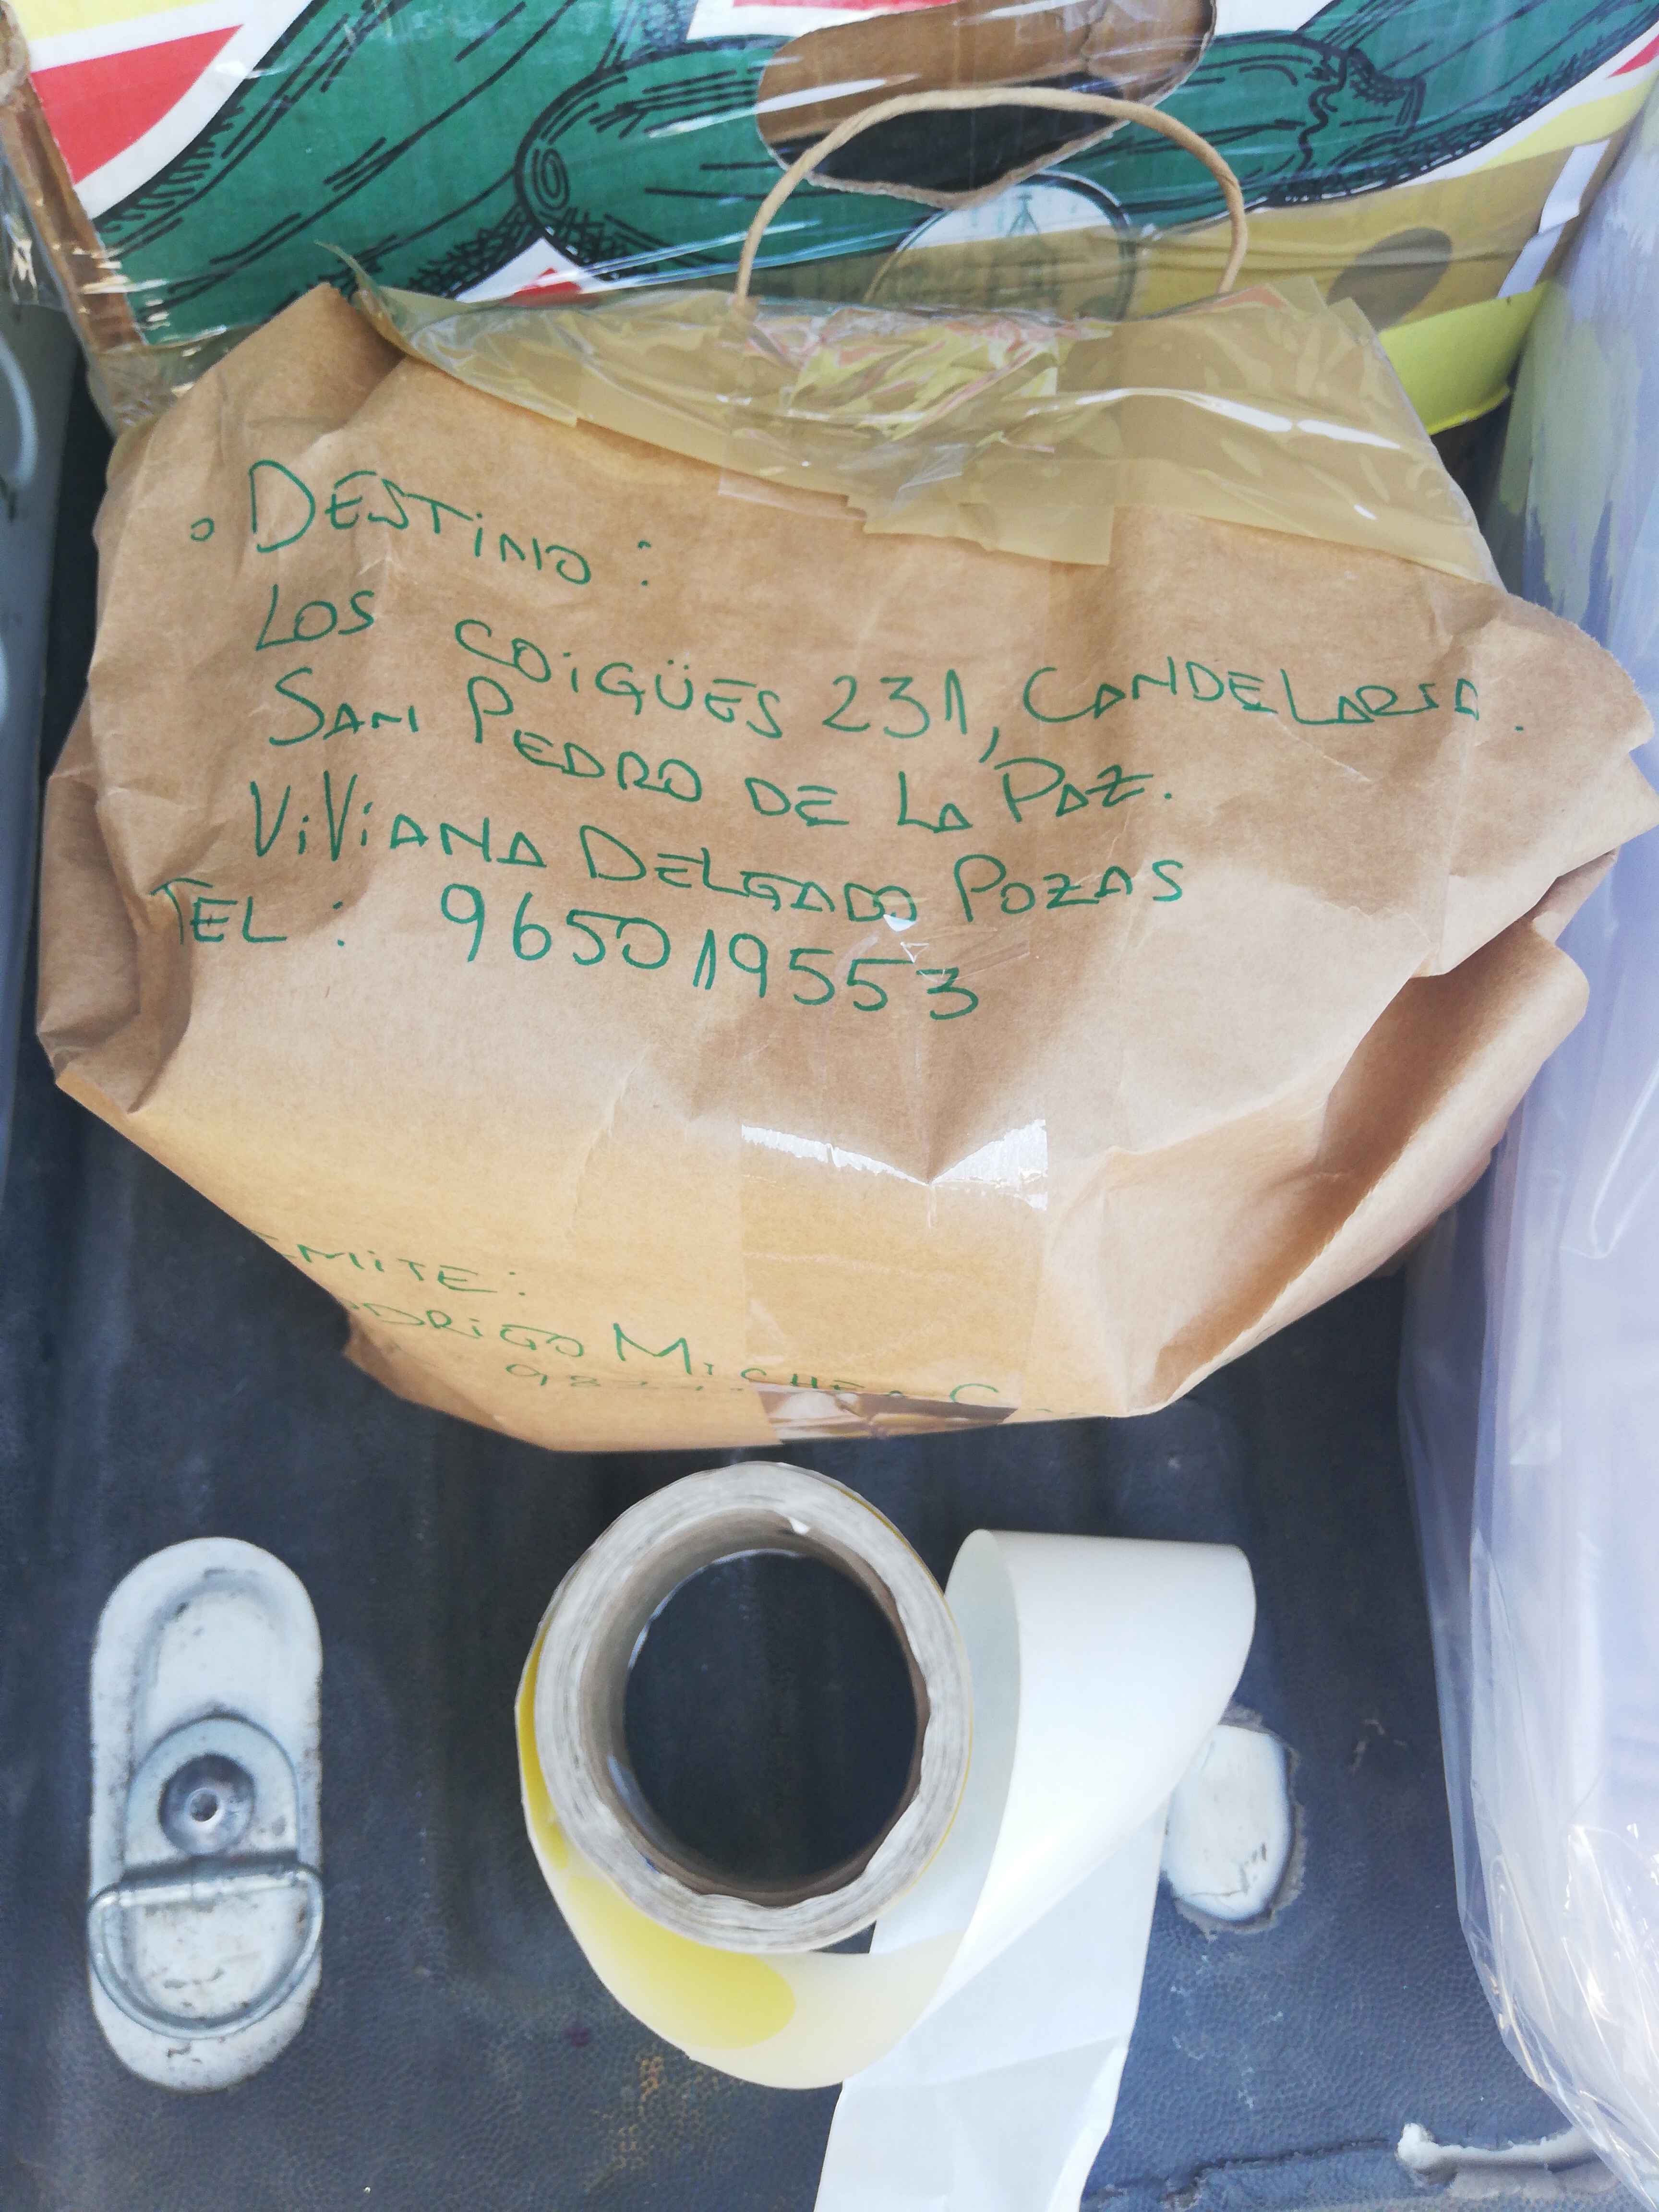 DESTINO:
LOS COIGÜES 231, CANDELARIA.
SAN PEDRO DE LA PAZ.
ViViANA DELGADO POZAS
TEL: 965019553
EMITE:
ODRIGO